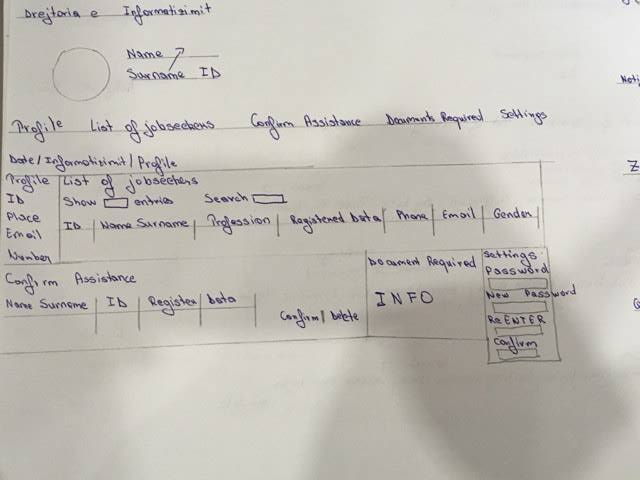 Drejtoria e Informatizimit
Name
Surname ID
Profile List of jobseekers Confirm Assistance Documents Required Settings
Date/Informatizimit/Profile
Profile
ID
Place
Email
Number
List of jobseekers
Show entries Search
ID Name Surname Profession Registered Data Phone Email Gender
Confirm Assistance
Name Surname ID Register Data
Confirm/Delete
Document Required
INFO
Settings
Password
New Password
ReENTER
Confirm
Noti
Z